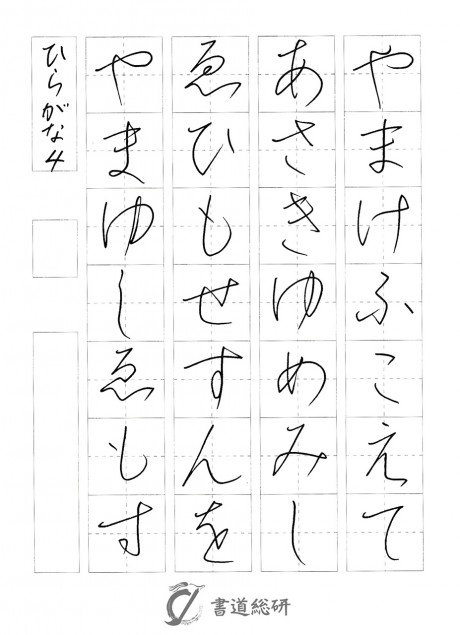 やまけふこえて
あさきゆめみし
ゑひもせすんを
やまゆしゑもす
ひらがな4
書道総研